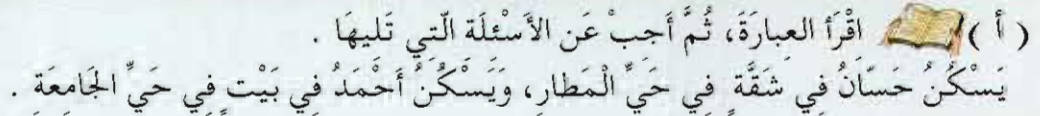 ( أ ) اقْرَأ العِبارَةَ، ثُمَّ أَجِبْ عَن الأَسْئِلَة الّتِي تَلِيهَا .
يَسْكُنُ حَسّانُ فِي شَقَّةٍ فِي حَيِّ الْمَطارِ، وَيَسْكُنُ أَحْمَدُ فِي بَيْتٍ فِي حَيِّ الجَامِعَةِ .